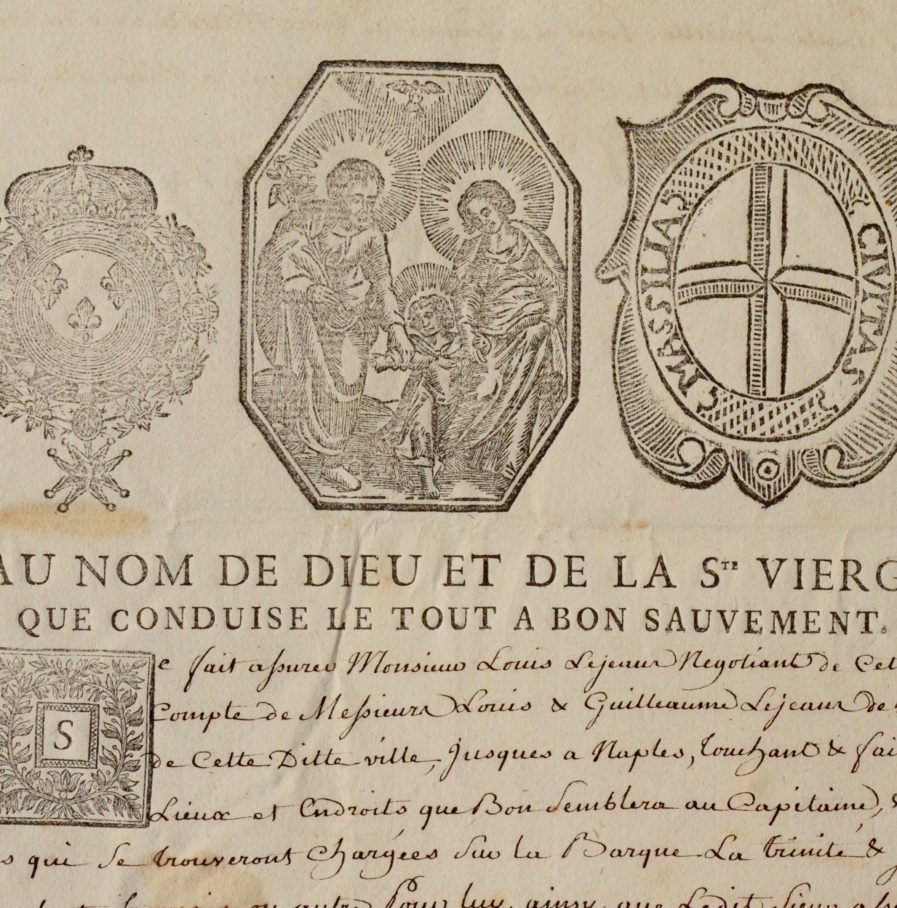 MASSILIA CIVITAS
AU NOM DE DIEU ET DE LA STE VIERG
QUE CONDUISE LE TOUT A BON SAUVEMENT.
Se fait assurer Monsieur Louis Lejeans Negotiant de Cet
Compte de Messieurs Louis & Guilleaume Lejeans de
de Cette Ditte ville, Jusques a Naples, touchant & fai
Lieux et Endroits que Bon Semblera au Capitaine,
s qui se trouveront Chargées sur la Barque La trinité &
ou autre Pour luy, ainsy que Ledit Sieur